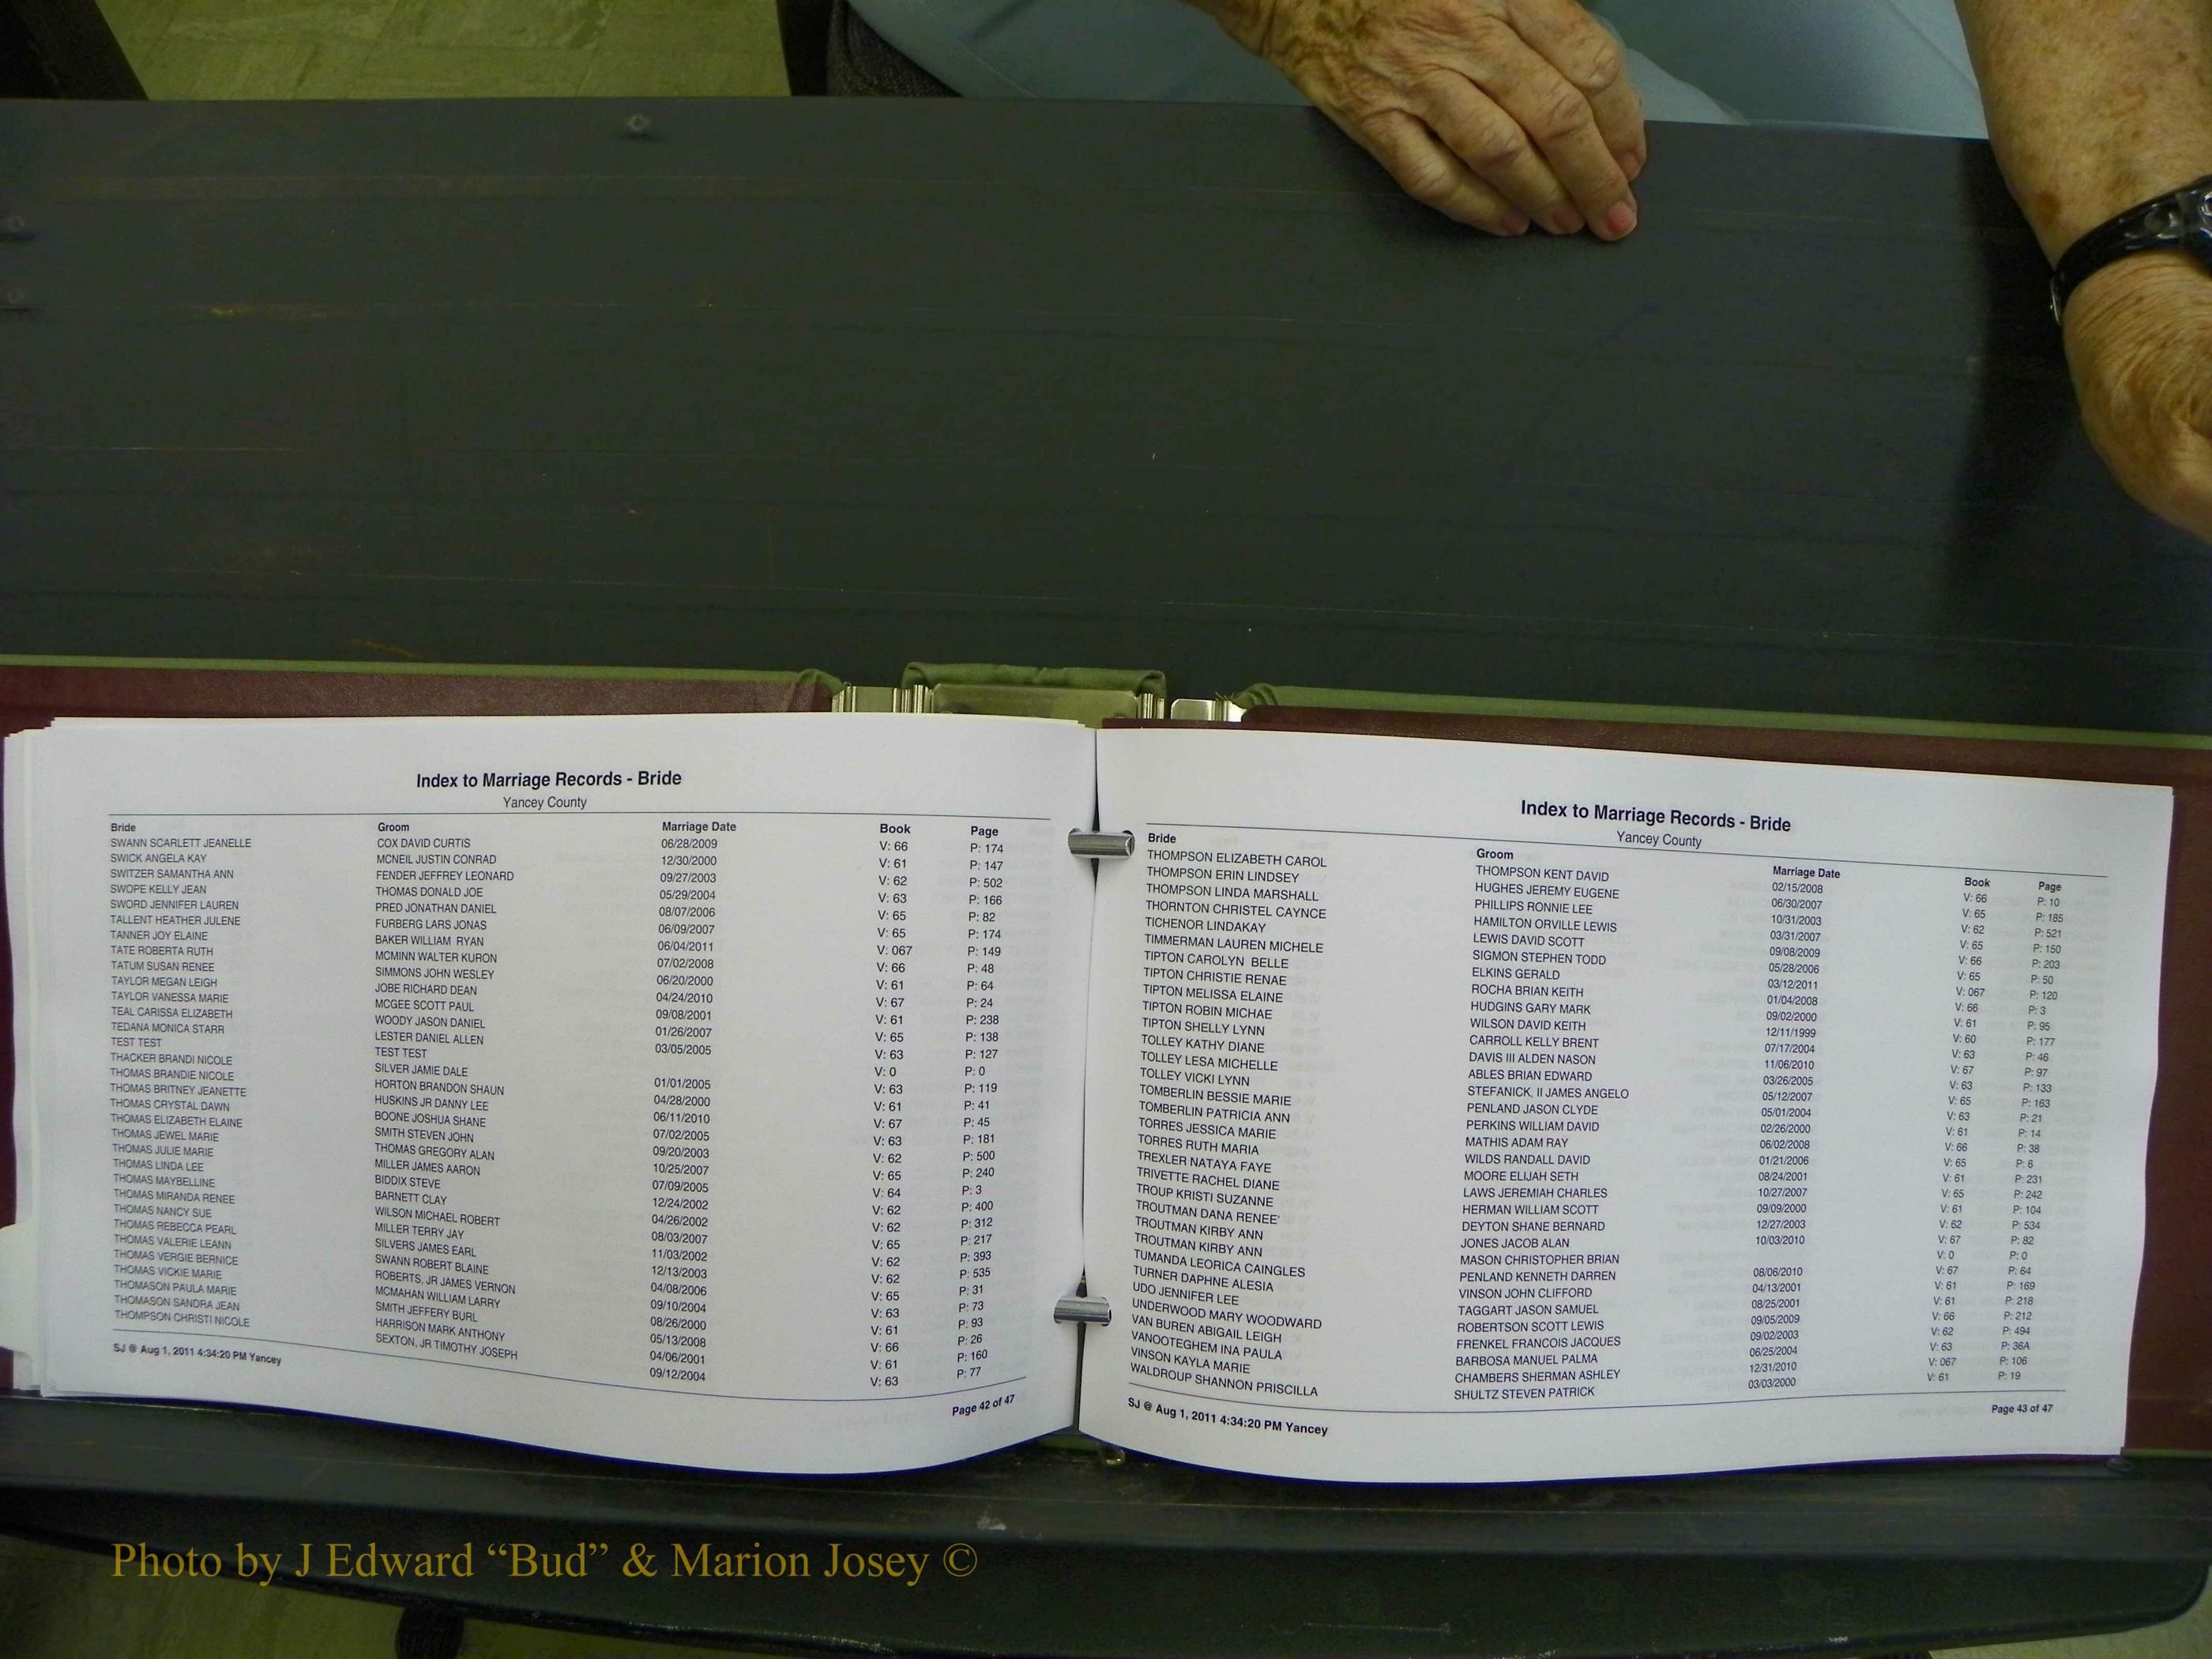 Index to Marriage Records - Bride
Yancey County
Bride Groom Marriage Date Book Page
SWANN SCARLETT JEANELLE COX DAVID CURTIS 06/28/2009 V: 66 P: 174
SWICK ANGELA KAY MCNEIL JUSTIN CONRAD 12/30/2000 V: 61 P: 147
SWITZER SAMANTHA ANN FENDER JEFFREY LEONARD 09/27/2003 V: 62 P: 502
SWOPE KELLY JEAN THOMAS DONALD JOE 05/29/2004 V: 63 P: 166
SWORD JENNIFER LAUREN PRED JONATHAN DANIEL 08/07/2006 V: 65 P: 82
TALLENT HEATHER JULENE FURBERG LARS JONAS 06/09/2007 V: 65 P: 174
TANNER JOY ELAINE BAKER WILLIAM RYAN 06/04/2011 V: 067 P: 149
TATE ROBERTA RUTH MCMINN WALTER KURON 07/02/2008 V: 66 P: 48
TATUM SUSAN RENEE SIMMONS JOHN WESLEY 06/20/2000 V: 61 P: 64
TAYLOR MEGAN LEIGH JOBE RICHARD DEAN 04/24/2010 V: 67 P: 24
TAYLOR VANESSA MARIE MCGEE SCOTT PAUL 09/08/2001 V: 61 P: 238
TEAL CARISSA ELIZABETH WOODY JASON DANIEL 01/26/2007 V: 65 P: 138
TEDANA MONICA STARR LESTER DANIEL ALLEN 03/05/2005 V: 63 P: 127
TEST TEST TEST TEST V: 0 P: 0
THACKER BRANDI NICOLE SILVER JAMIE DALE 01/01/2005 V: 63 P: 119
THOMAS BRANDIE NICOLE HORTON BRANDON SHAUN 04/28/2000 V: 61 P: 41
THOMAS BRITNEY JEANETTE HUSKINS JR DANNY LEE 06/11/2010 V: 67 P: 45
THOMAS CRYSTAL DAWN BOONE JOSHUA SHANE 07/02/2005 V: 63 P: 181
THOMAS ELIZABETH ELAINE SMITH STEVEN JOHN 09/20/2003 V: 62 P: 500
THOMAS JEWEL MARIE THOMAS GREGORY ALAN 10/25/2007 V: 65 P: 240
THOMAS JULIE MARIE MILLER JAMES AARON 07/09/2005 V: 64 P: 3
THOMAS LINDA LEE BIDDIX STEVE 12/24/2002 V: 62 P: 400
THOMAS MAYBELLINE BARNETT CLAY 04/26/2002 V: 62 P: 312
THOMAS MIRANDA RENEE WILSON MICHAEL ROBERT 08/03/2007 V: 65 P: 217
THOMAS NANCY SUE MILLER TERRY JAY 11/03/2002 V: 62 P: 393
THOMAS REBECCA PEARL SILVERS JAMES EARL 12/13/2003 V: 62 P: 535
THOMAS VALERIE LEANN SWANN ROBERT BLAINE 04/08/2006 V: 65 P: 31
THOMAS VERGIE BERNICE ROBERTS, JR JAMES VERNON 09/10/2004 V: 63 P: 73
THOMAS VICKIE MARIE MCMAHAN WILLIAM LARRY 08/26/2000 V: 61 P: 93
THOMASON PAULA MARIE SMITH JEFFERY BURL 05/13/2008 V: 66 P: 26
THOMASON SANDRA JEAN HARRISON MARK ANTHONY 04/06/2001 V: 61 P: 160
THOMPSON CHRISTI NICOLE SEXTON, JR TIMOTHY JOSEPH 09/12/2004 V: 63 P: 77
SJ @ Aug 1, 2011 4:34:20 PM Yancey Page 42 of 47
Index to Marriage Records - Bride
Yancey County
Bride Groom Marriage Date Book Page
THOMPSON ELIZABETH CAROL THOMPSON KENT DAVID 02/15/2008 V: 66 P: 10
THOMPSON ERIN LINDSEY HUGHES JEREMY EUGENE 06/30/2007 V: 65 P: 185
THOMPSON LINDA MARSHALL PHILLIPS RONNIE LEE 10/31/2003 V: 62 P: 521
THORNTON CHRISTEL CAYNCE HAMILTON ORVILLE LEWIS 03/31/2007 V: 65 P: 150
TICHENOR LINDAKAY LEWIS DAVID SCOTT 09/08/2009 V: 66 P: 203
TIMMERMAN LAUREN MICHELE SIGMON STEPHEN TODD 05/28/2006 V: 65 P: 50
TIPTON CAROLYN BELLE ELKINS GERALD 03/12/2011 V: 067 P: 120
TIPTON CHRISTIE RENAE ROCHA BRIAN KEITH 01/04/2008 V: 66 P: 3
TIPTON MELISSA ELAINE HUDGINS GARY MARK 09/02/2000 V: 61 P: 95
TIPTON ROBIN MICHAE WILSON DAVID KEITH 12/11/1999 V: 60 P: 177
TIPTON SHELLY LYNN CARROLL KELLY BRENT 07/17/2004 V: 63 P: 46
TOLLEY KATHY DIANE DAVIS III ALDEN NASON 11/06/2010 V: 67 P: 97
TOLLEY LESA MICHELLE ABLES BRIAN EDWARD 03/26/2005 V: 63 P: 133
TOLLEY VICKI LYNN STEFANICK, II JAMES ANGELO 05/12/2007 V: 65 P: 163
TOMBERLIN BESSIE MARIE PENLAND JASON CLYDE 05/01/2004 V: 63 P: 21
TOMBERLIN PATRICIA ANN PERKINS WILLIAM DAVID 02/26/2000 V: 61 P: 14
TORRES JESSICA MARIE MATHIS ADAM RAY 06/02/2008 V: 66 P: 38
TORRES RUTH MARIA WILDS RANDALL DAVID 01/21/2006 V: 65 P: 6
TREXLER NATAYA FAYE MOORE ELIJAH SETH 08/24/2001 V: 61 P: 231
TRIVETTE RACHEL DIANE LAWS JEREMIAH CHARLES 10/27/2007 V: 65 P: 242
TROUP KRISTI SUZANNE HERMAN WILLIAM SCOTT 09/09/2000 V: 61 P: 104
TROUTMAN DANA RENEE' DEYTON SHANE BERNARD 12/27/2003 V: 62 P: 534
TROUTMAN KIRBY ANN JONES JACOB ALAN 10/03/2010 V: 67 P: 82
TROUTMAN KIRBY ANN MASON CHRISTOPHER BRIAN V: 0 P: 0
TUMANDA LEORICA CAINGLES PENLAND KENNETH DARREN 08/06/2010 V: 67 P: 64
TURNER DAPHNE ALESIA VINSON JOHN CLIFFORD 04/13/2001 V: 61 P: 169
UDO JENNIFER LEE TAGGART JASON SAMUEL 08/25/2001 V: 61 P: 218
UNDERWOOD MARY WOODWARD ROBERTSON SCOTT LEWIS 09/05/2009 V: 66 P: 212
VAN BUREN ABIGAIL LEIGH FRENKEL FRANCOIS JACQUES 09/02/2003 V: 62 P: 494
VANOOTEGHEM INA PAULA BARBOSA MANUEL PALMA 06/25/2004 V: 63 P: 36A
VINSON KAYLA MARIE CHAMBERS SHERMAN ASHLEY 12/31/2010 V: 067 P: 106
WALDROUP SHANNON PRISCILLA SHULTZ STEVEN PATRICK 03/03/2000 V: 61 P: 19
SJ @ Aug 1, 2011 4:34:20 PM Yancey Page 43 of 47
Photo by J Edward “Bud” & Marion Josey ©